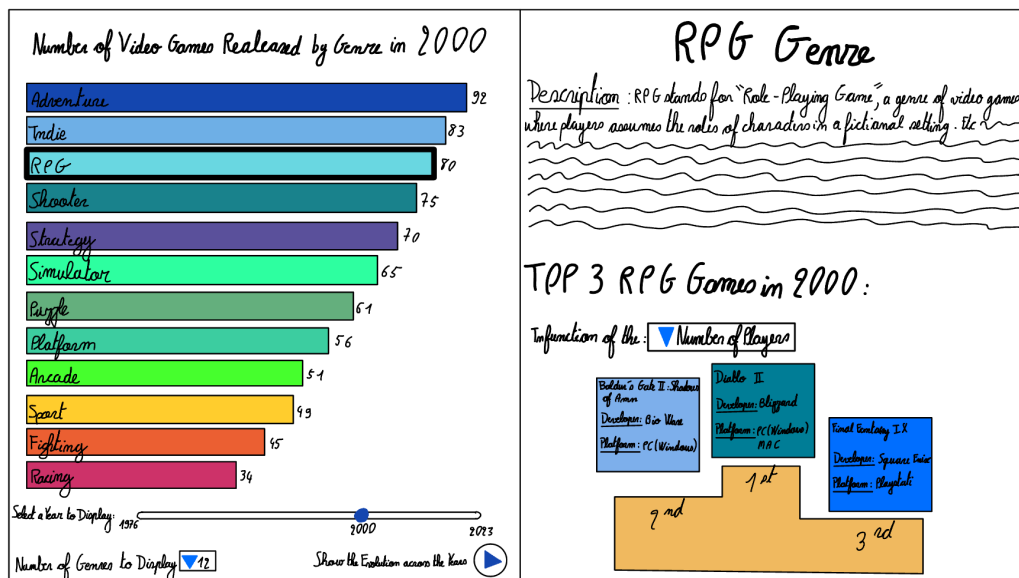 Number of Video Games Realeased by Genre in 2000
Adventure 92
Indie 83
RPG 80
Shooter 75
Strategy 70
Simulator 65
Puzzle 61
Platform 56
Arcade 51
Sport 49
Fighting 45
Racing 34
Select a Year to Display:
1976 2000 2023
Number of Genres to Display 12
Show the Evolution across the Years
RPG Genre
Description : RPG stands for "Role-Playing Game", a genre of video games
where players assumes the roles of characters in a fictional setting. Etc
TOP 3 RPG Games in 2000:
In function of the: Number of Players
Baldur's Gate II: Shadows
of Amn
Developer: Bio Ware
Platform: PC(Windows)
Diablo II
Developer: Blizzard
Platform: PC(Windows)
MAC
Final Fantasy IX
Developer: Square Enix
Platform:
1st
2nd
3rd